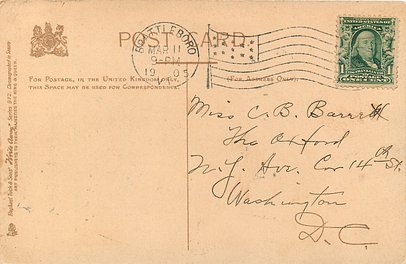 POST CARD
BRATTLEBORO
MAR 11
9-PM
1905
FOR POSTAGE, IN THE UNITED KINGDOM ONLY,
THIS SPACE MAY BE USED FOR CORRESPONDENCE.
(FOR ADDRESS ONLY).
Miss C. B. Barrett
The Oxford
N.Y. Ave. Cor 14th St.
Washington
D.C.
Raphael Tuck & Sons' "Write Away" Series 972.
ART PUBLISHERS TO THEIR MAJESTIES THE KING & QUEEN.